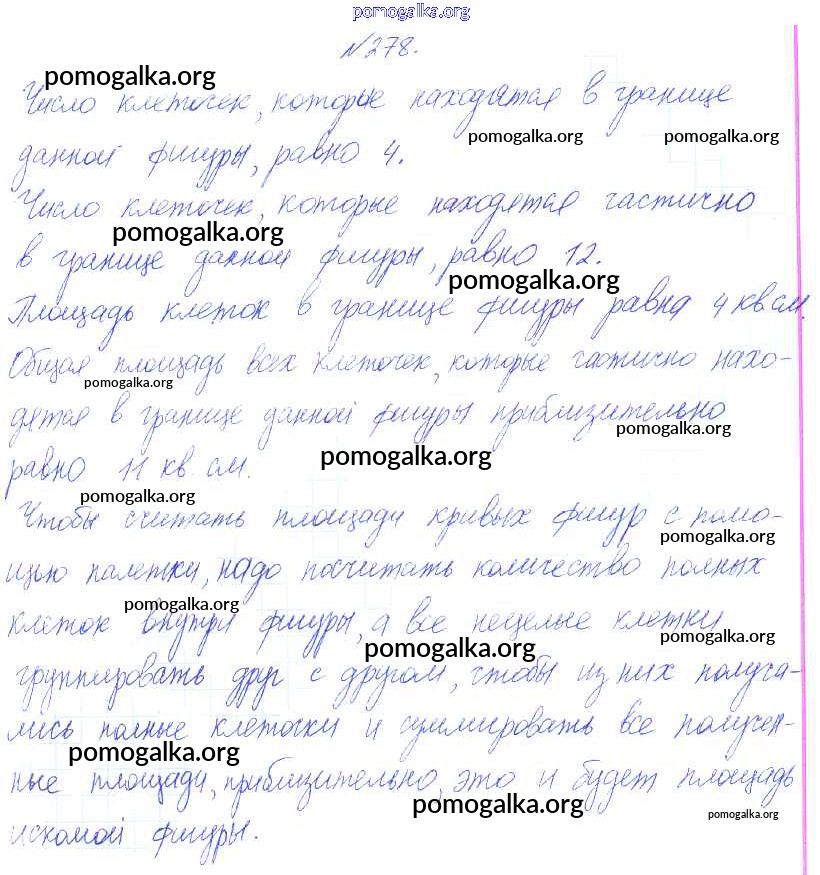 pomogalka.org
№278.
pomogalka.org
Число клеточек, которые находятся в границе
pomogalka.org pomogalka.org
данной фигуры, равно 4.
Число клеточек, которые находятся частично
pomogalka.org
в границе данной фигуры, равно 12.
pomogalka.org
Площадь клеток в границе фигуры равна 4 кв.см.
Общая площадь всех клеточек, которые частично нахо-
pomogalka.org
дятся в границе данной фигуры приблизительно
pomogalka.org
равно 11 кв. см.
pomogalka.org
pomogalka.org
Чтобы считать площади кривых фигур с помо-
pomogalka.org
щью палетки, надо посчитать количество полных
pomogalka.org
клеток внутри фигуры, а все нецелые клетки
pomogalka.org
pomogalka.org
группировать друг с другом, чтобы из них получа-
лись полные клеточки и суммировать все получен-
pomogalka.org
ные площади, приблизительно, это и будет площадь
pomogalka.org
pomogalka.org
искомой фигуры.